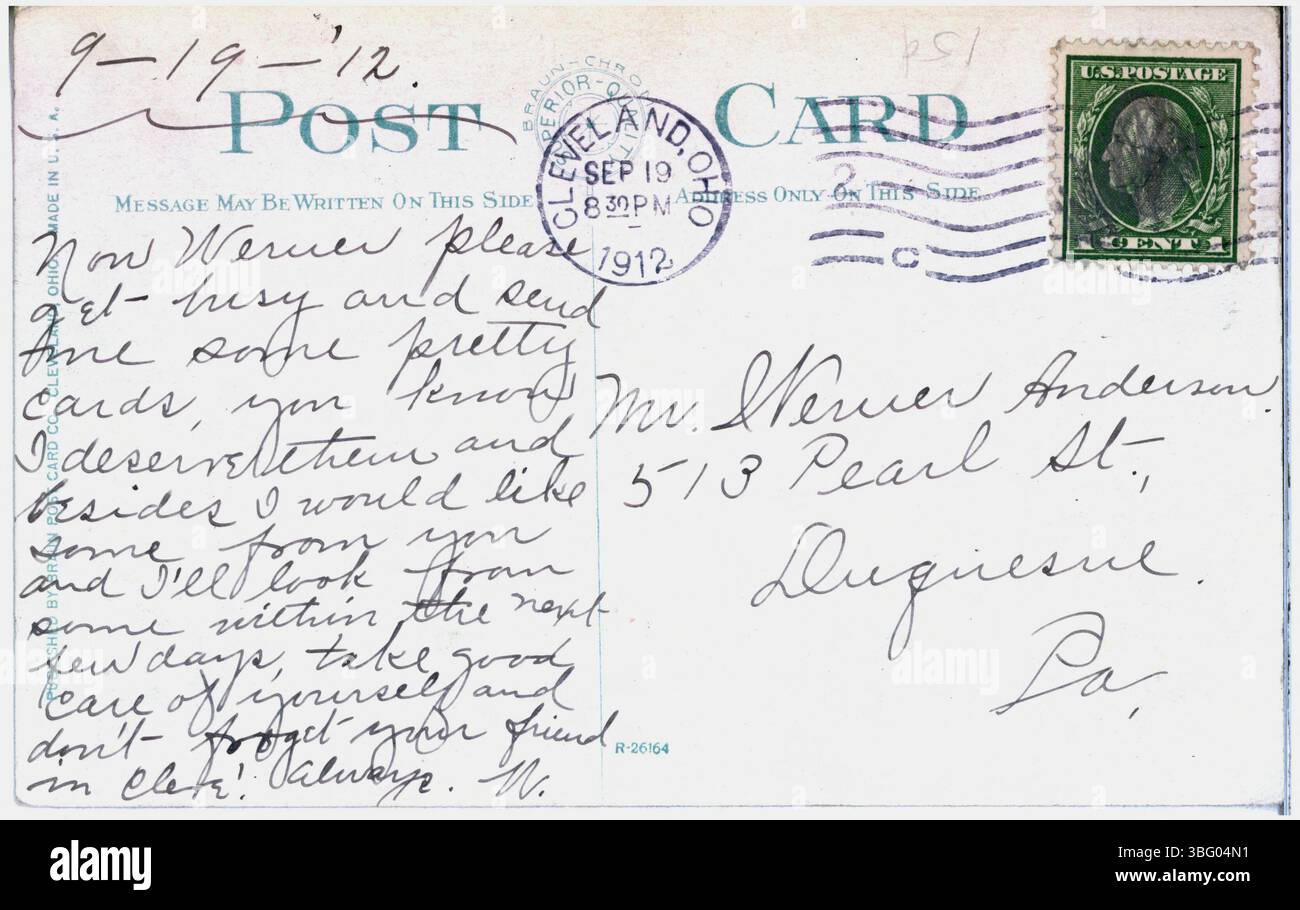 9-19-'12.
15¢
POST CARD
BRAUN-CHROM
SUPERIOR-QUALITY
CLEVELAND, OHIO
SEP 19
8 30 PM
1912
2
C
U.S. POSTAGE
1 CENT 1
MESSAGE MAY BE WRITTEN ON THIS SIDE
ADDRESS ONLY ON THIS SIDE
PUBLISHED BY BRAUN POST CARD CO. CLEVELAND, OHIO. MADE IN U.S.A.
Now Werner please
get busy and send
me some pretty
cards, you know
I deserve them and
besides I would like
some from you
and I'll look from
some within the next
few days, take good
care of yourself and
don't forget your friend
in Cleve! Always. W.
Mr. Werner Anderson
513 Pearl St.,
Duquesne.
Pa,
R-26164
alamy
alamy
Image ID: 3BG04N1
www.alamy.com